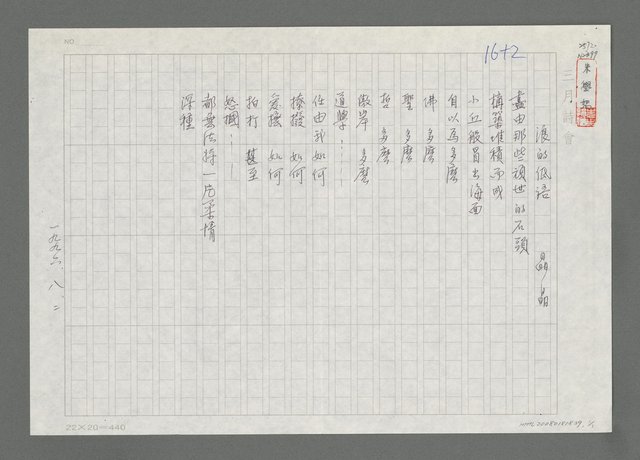 三月詩會
浪的低語 晶晶
盡由那些頑世的石頭
構築堆積而成
小丘般冒出海面
自以為多麼
佛 多麼
聖 多麼
哲 多麼
傲岸 多麼
道學……
任由我如何
撩撥 如何
愛撫 如何
拍打 甚至
怒摑……
都無法將一片柔情
深種
一九九六、八、二
16+2
NO
22×20=440